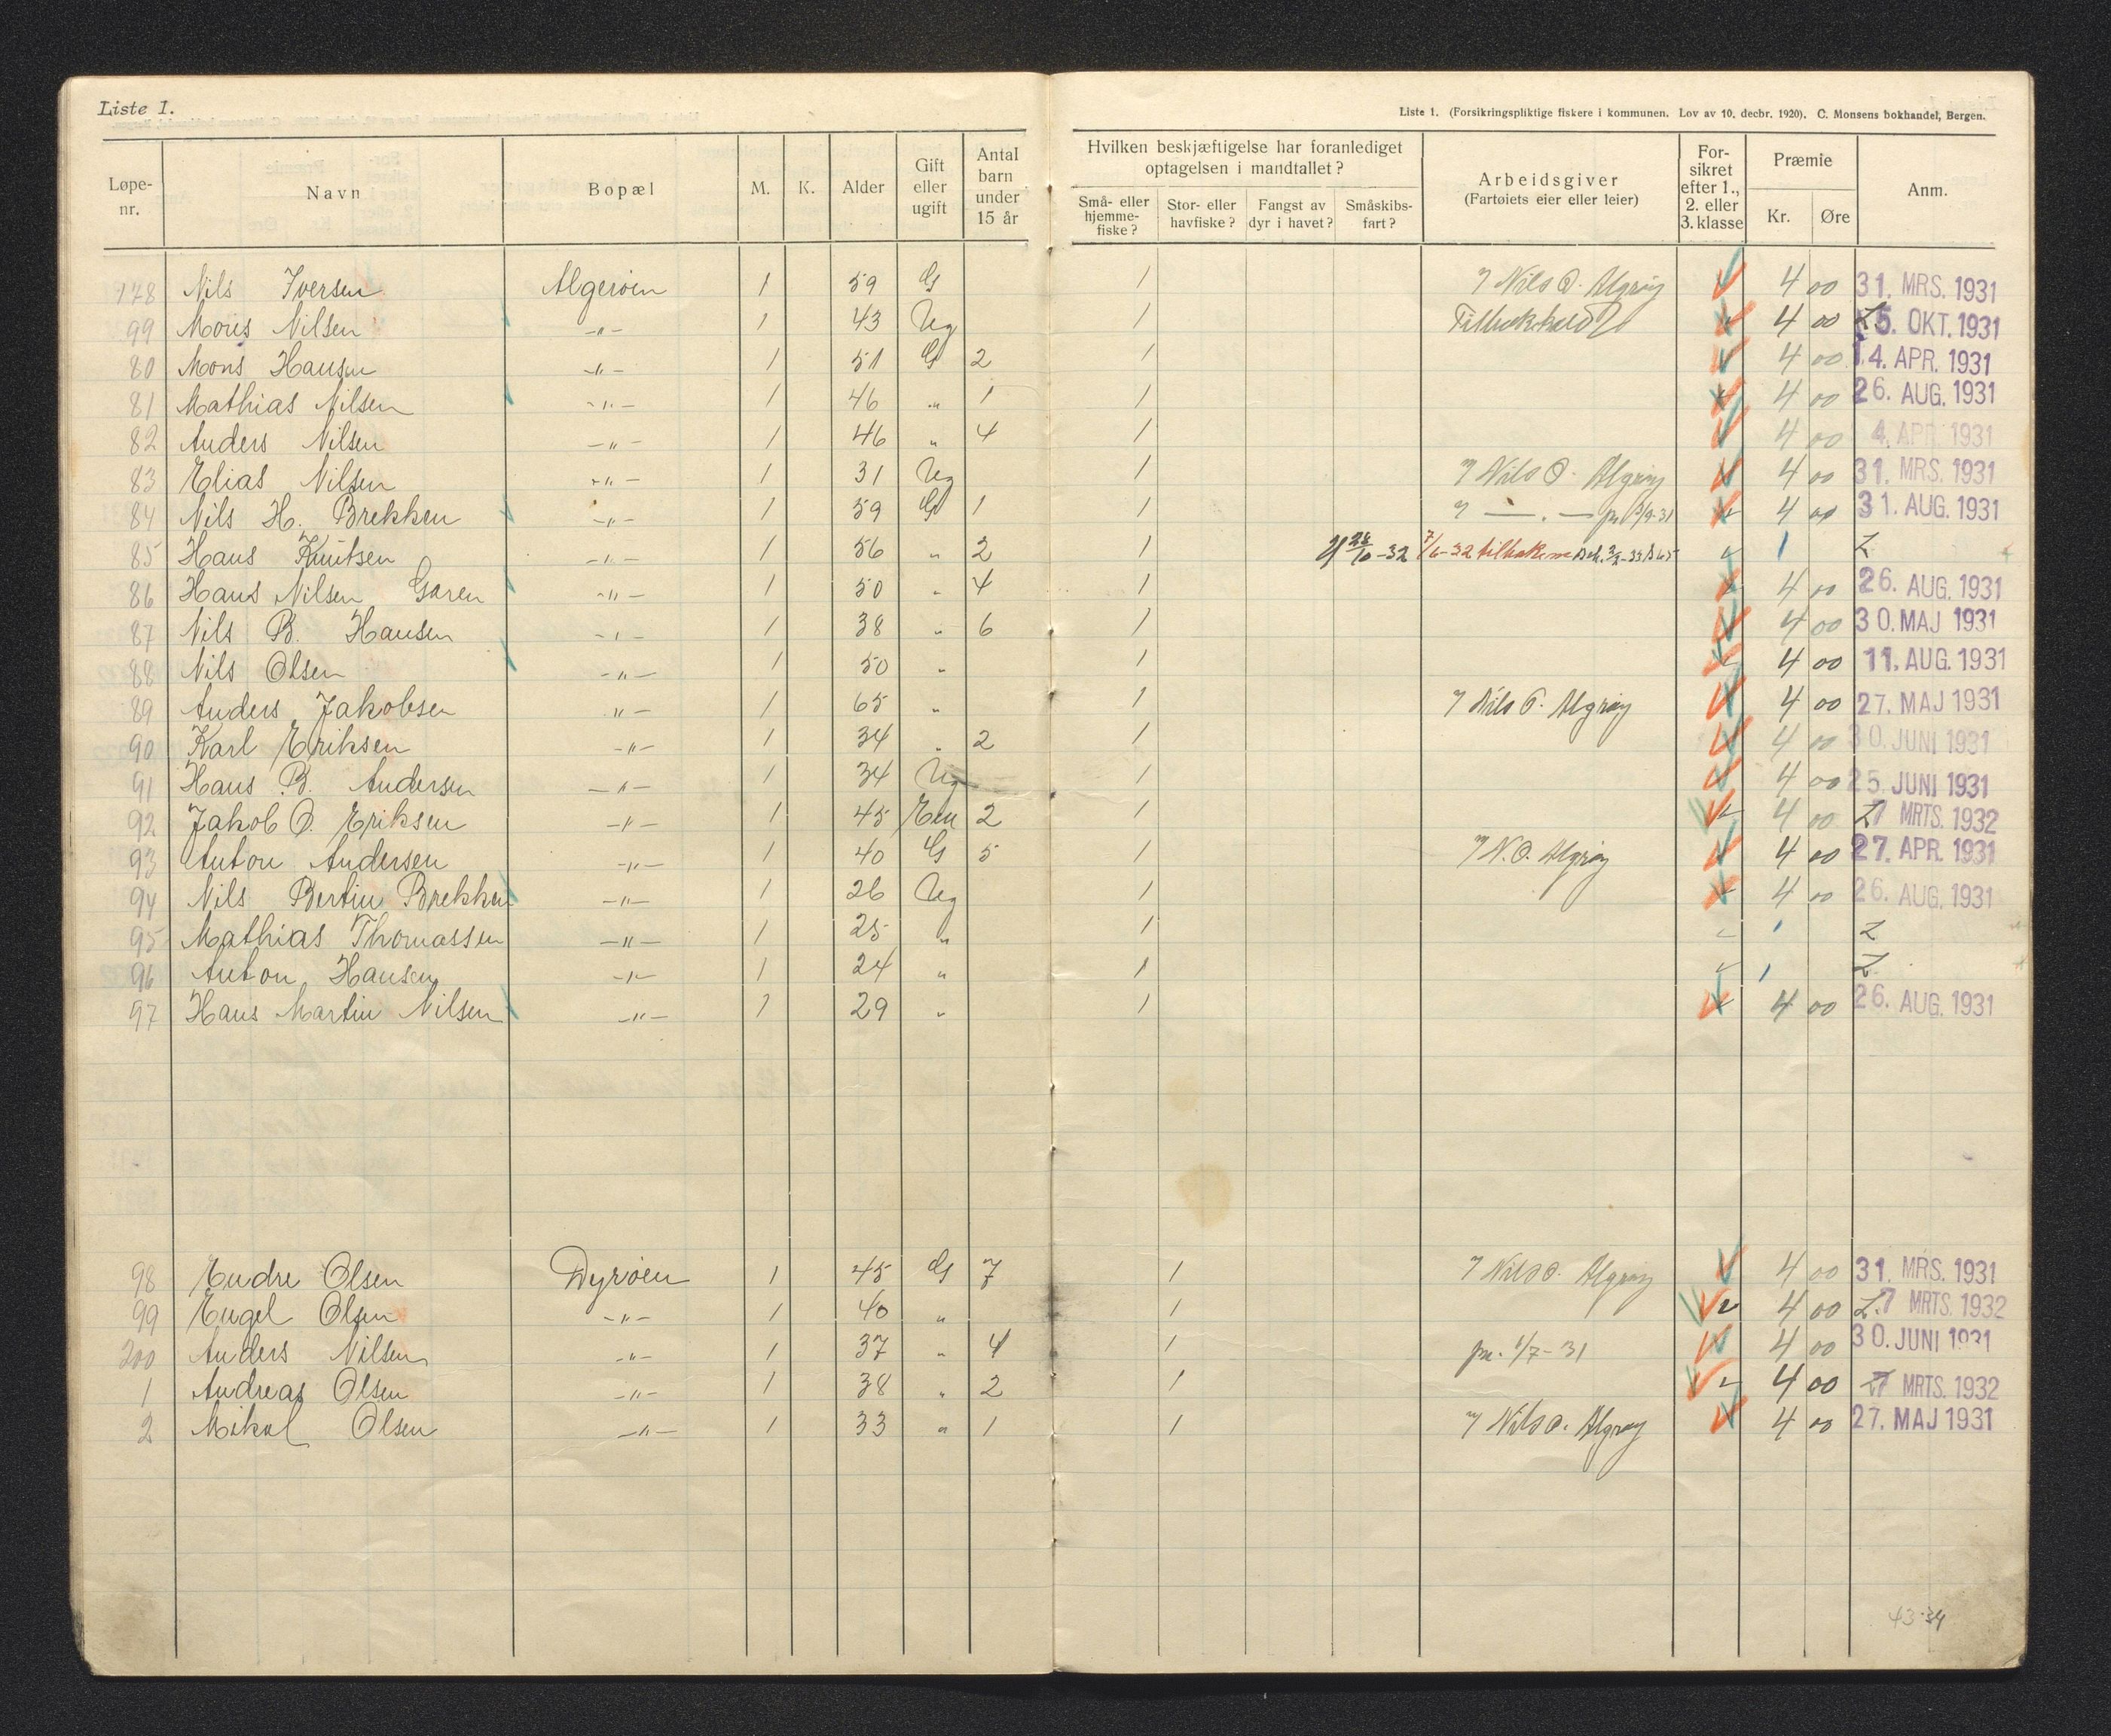 Liste 1.
Liste 1. (Forsikringspliktige fiskere i kommunen. Lov av 10. decbr. 1920). C. Monsens bokhandel, Bergen.
Løpe-nr. Navn Bopæl M. K. Alder Gift eller ugift Antal barn under 15 år Hvilken beskjæftigelse har foranlediget optagelsen i mandtallet? Små- eller hjemme-fiske? Stor- eller havfiske? Fangst av dyr i havet? Småskibs-fart? Arbeidsgiver (Fartøiets eier eller leier) For-sikret efter 1., 2. eller 3. klasse Præmie Kr. Øre Anm.
178 Nils Iversen Algerøen 1 59 G 1 Nils O. Algrøy 4 00 31. MRS. 1931
99 Mons Nilsen -"- 1 43 Ug 1 4 00 5. OKT. 1931
80 Mons Hansen -"- 1 51 G 2 1 4 00 4. APR. 1931
81 Mathias Nilsen -"- 1 46 " 1 1 4 00 26. AUG. 1931
82 Anders Nilsen -"- 1 46 " 4 1 4 00 4. APR. 1931
83 Elias Nilsen -"- 1 31 Ug 1 Nils O. Algrøy 4 00 31. MRS. 1931
84 Nils H. Brekken -"- 1 59 G 1 1 — " — 4 00 31. AUG. 1931
85 Hans Knutsen -"- 1 56 " 2 1 28/10-32 7/6-32 1
86 Hans Nilsen Garen -"- 1 50 " 4 1 4 00 26. AUG. 1931
87 Nils B. Hansen -"- 1 38 " 6 1 4 00 30. MAJ 1931
88 Nils Olsen -"- 1 50 " 1 4 00 11. AUG. 1931
89 Anders Jakobsen -"- 1 65 " 1 Nils O. Algrøy 4 00 27. MAJ 1931
90 Karl Eriksen -"- 1 34 " 2 1 4 00 30. JUNI 1931
91 Hans B. Andersen -"- 1 34 Ug 1 4 00 25. JUNI 1931
92 Jakob O. Eriksen -"- 1 45 Em 2 1 4 00 7 MRTS. 1932
93 Anton Andersen -"- 1 40 G 5 1 N. O. Algrøy 4 00 27. APR. 1931
94 Nils Bertin Brekken -"- 1 26 Ug 1 4 00 26. AUG. 1931
95 Mathias Thomassen -"- 1 25 " 1 1
96 Anton Hansen -"- 1 24 " 1 1
97 Hans Martin Nilsen -"- 1 29 " 1 4 00 26. AUG. 1931
98 Endre Olsen Dyrøen 1 45 G 7 1 Nils O. Algrøy 4 00 31. MRS. 1931
99 Engel Olsen -"- 1 40 " 1 4 00 7 MRTS. 1932
200 Anders Nilsen -"- 1 37 " 4 1 pr. 1/7-31 4 00 30. JUNI 1931
1 Andreas Olsen -"- 1 38 " 2 1 4 00 7 MRTS. 1932
2 Mikal Olsen -"- 1 33 " 1 1 Nils O. Algrøy 4 00 27. MAJ 1931
43-34